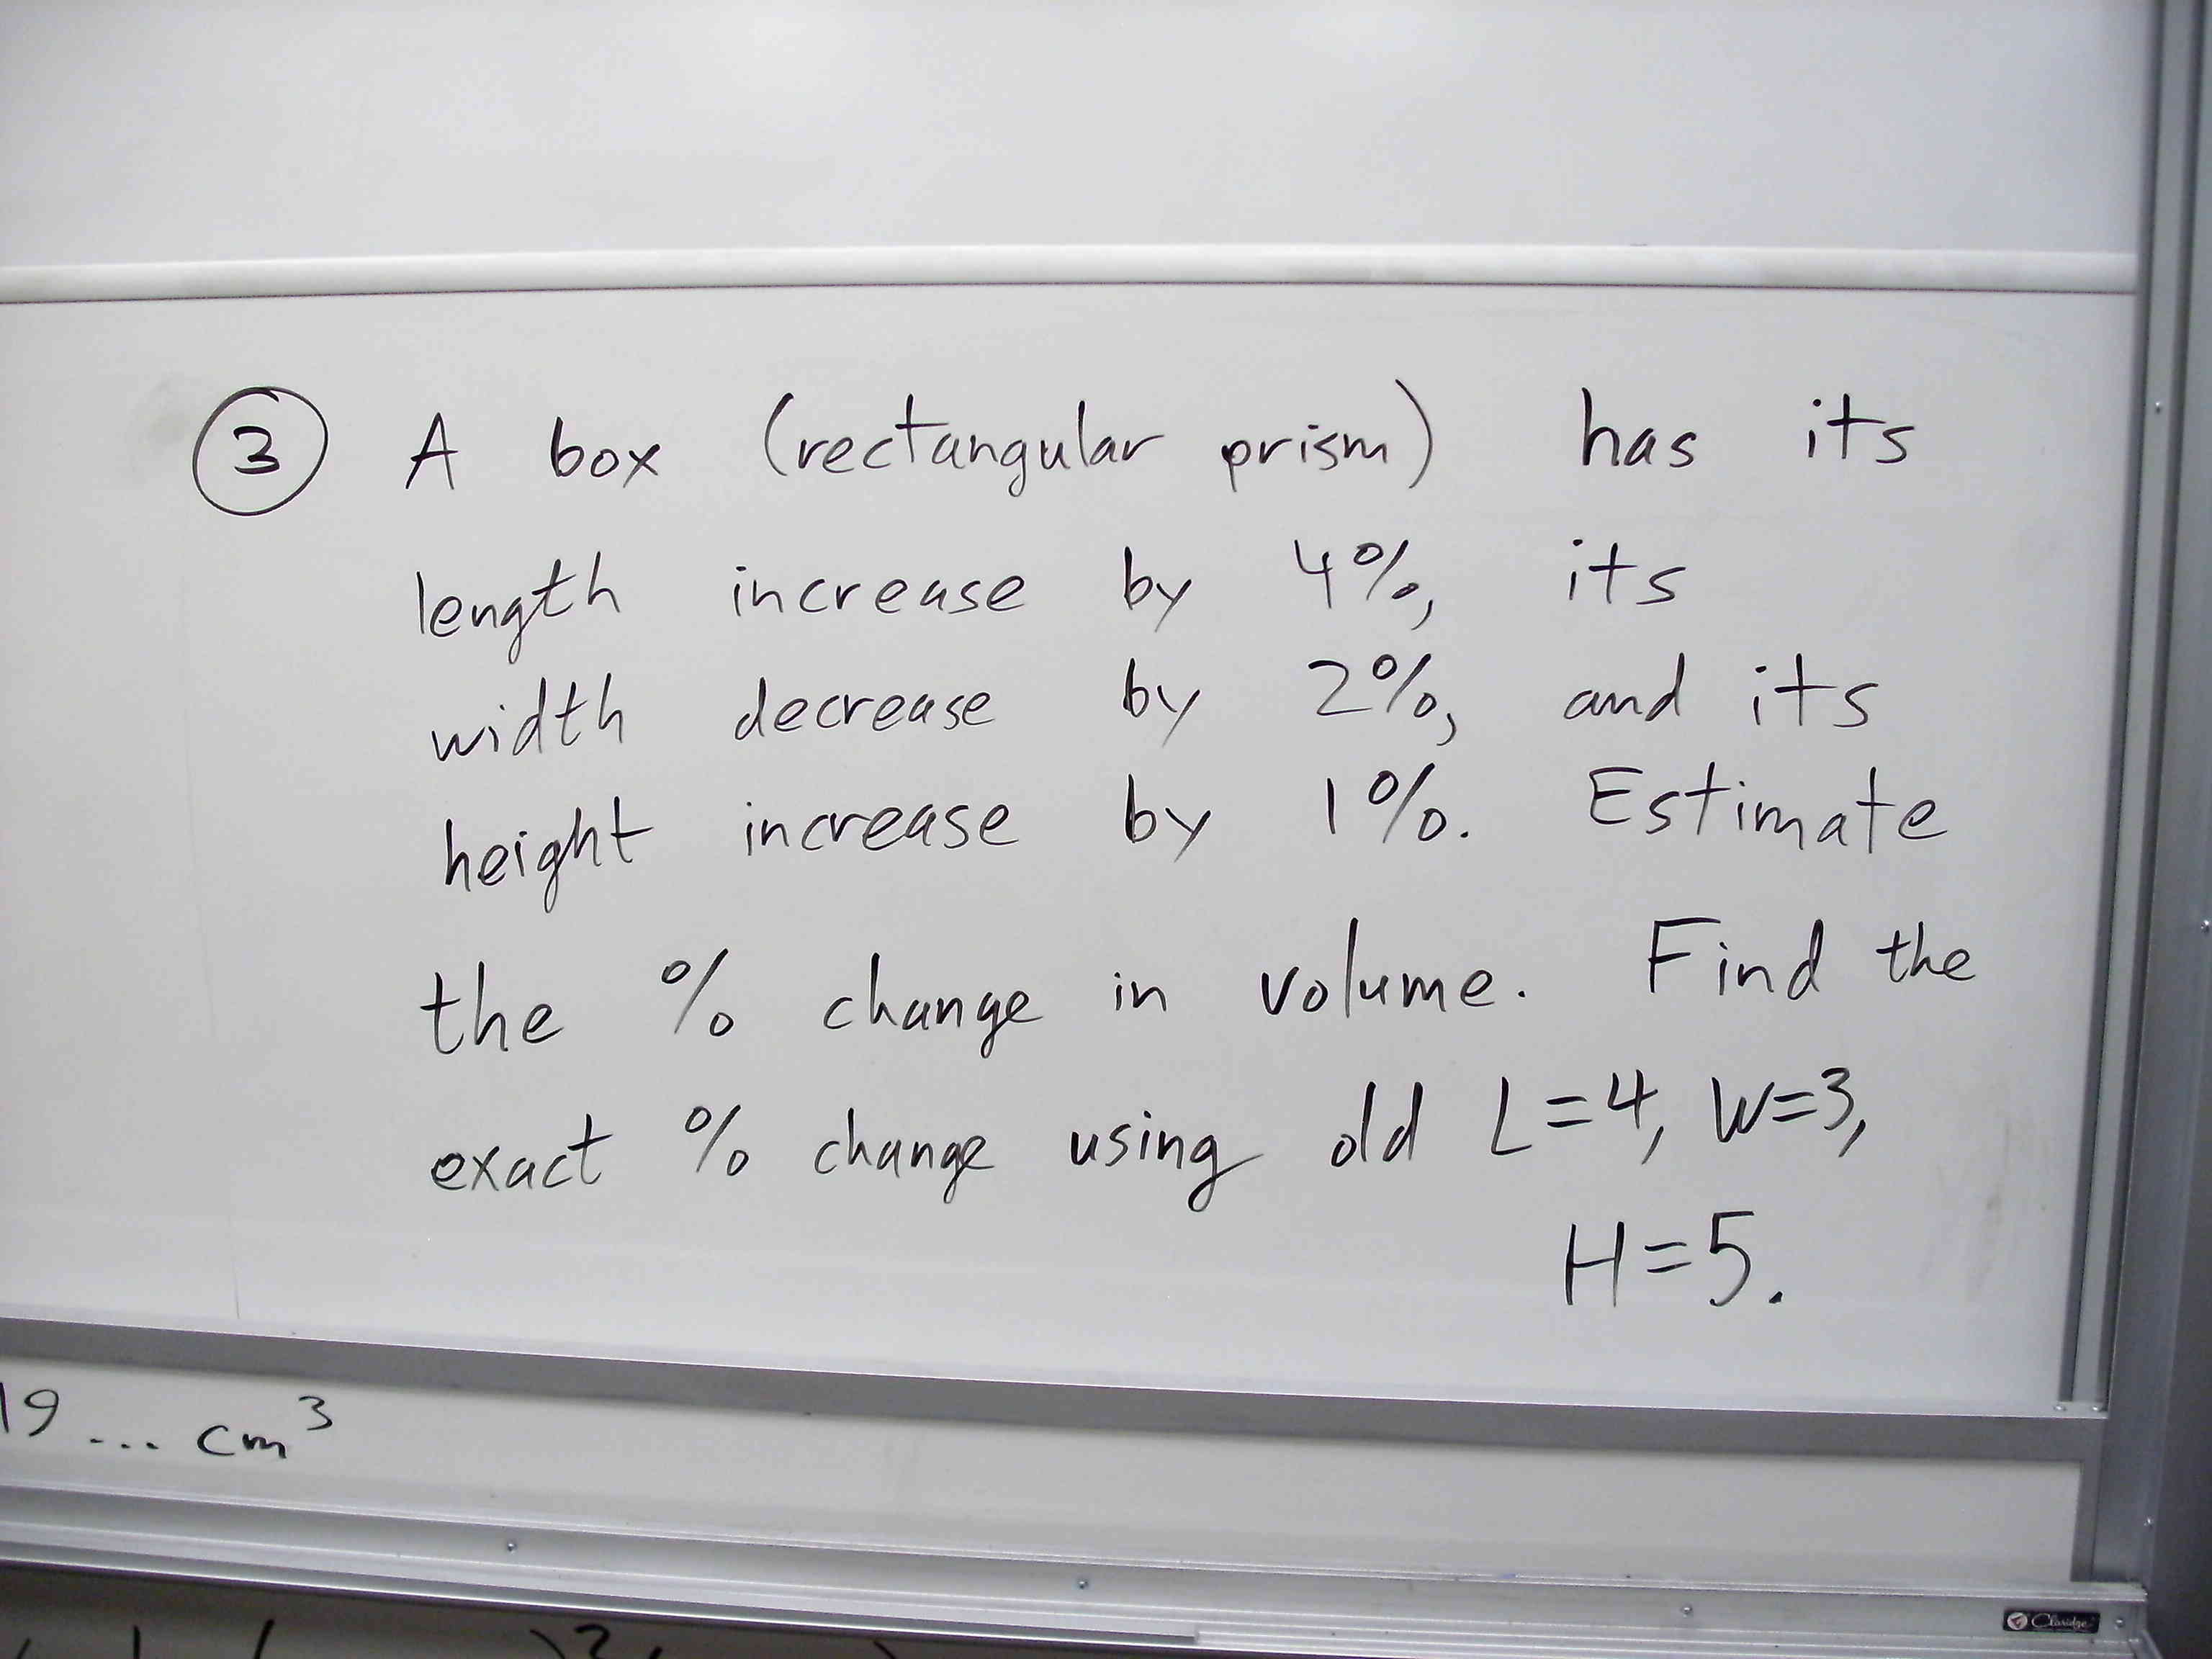 ③ A box (rectangular prism) has its
length increase by 4%, its
width decrease by 2%, and its
height increase by 1%. Estimate
the % change in volume. Find the
exact % change using old L=4, W=3,
H=5.
19... cm³
Claridge